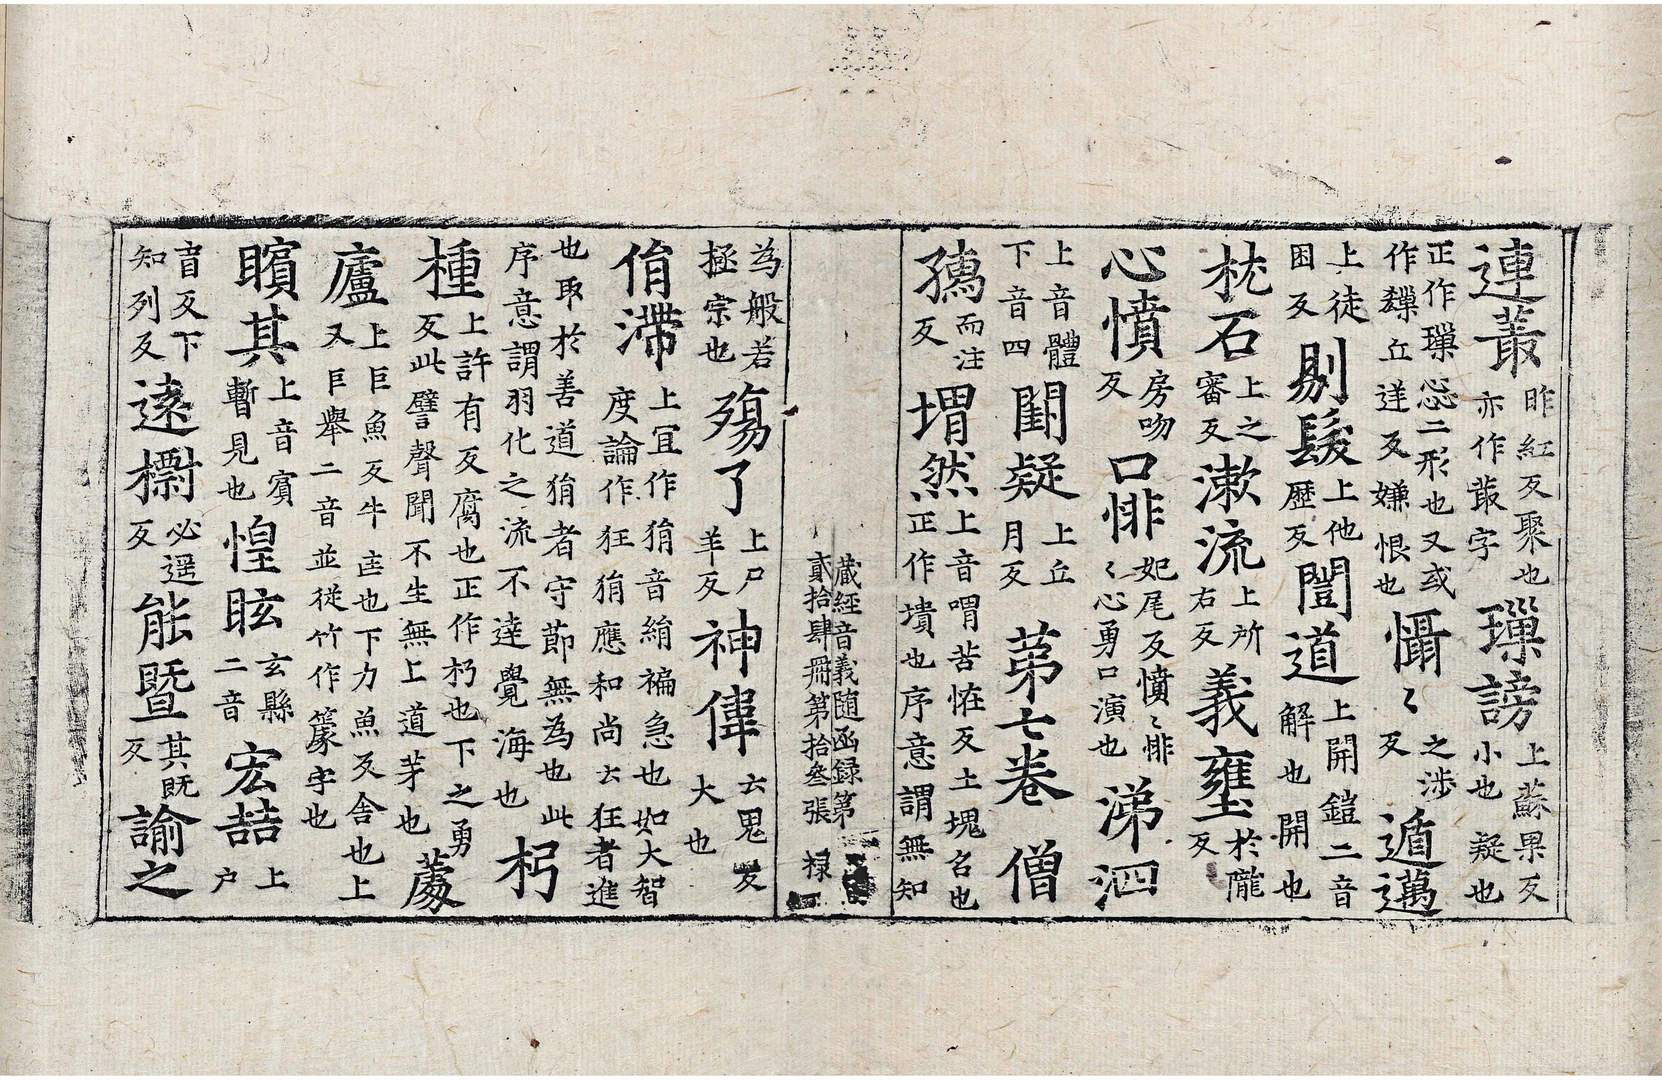 連䕺昨紅反聚也亦作菆字璅謗上蘇果反小也疑也
正作璅惢二形也又或作丘送反嫌恨也懾〻之涉反遁邁
上徒困反剔髮上他歷反闓道上開鎧二音解也開也
枕石上之審反漱流上所右反義壅於隴反
心憤房吻反口悱妃尾反憤〻悱〻心勇口演也涕泗
上音體下音四闃疑上丘月反苐七卷 僧
孺而注反然上音喟苦恠反土塊名也正作墤也序意謂無知
藏經音義随函録第
貳拾肆冊第拾叄張 禄
為般若極宗也殤了上尸羊反神偉云鬼反大也
滯上冝作狷音絹褊急也如大智度論作狂狷應和尚云狂者進
也取於善道狷者守節無為也此序意謂羽化之流不達覺海也朽
種上許有反腐也正作朽也下之勇反此譬聲聞不生無上道芽也蘧
廬上巨魚反牛也下力魚反舍也上又巨舉二音並從竹作篆字也
矉其上音賓暫見也惶眩玄縣二音宏喆上户
盲反下知列反遠必遥反能暨其既反諭之